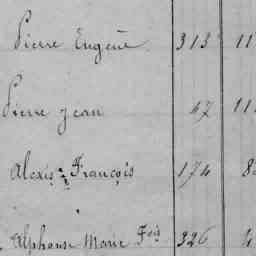 Pierre Eugène 313 11
Pierre Jean 47 11
Alexis François 174 8
Alphonse Marie Fois 326